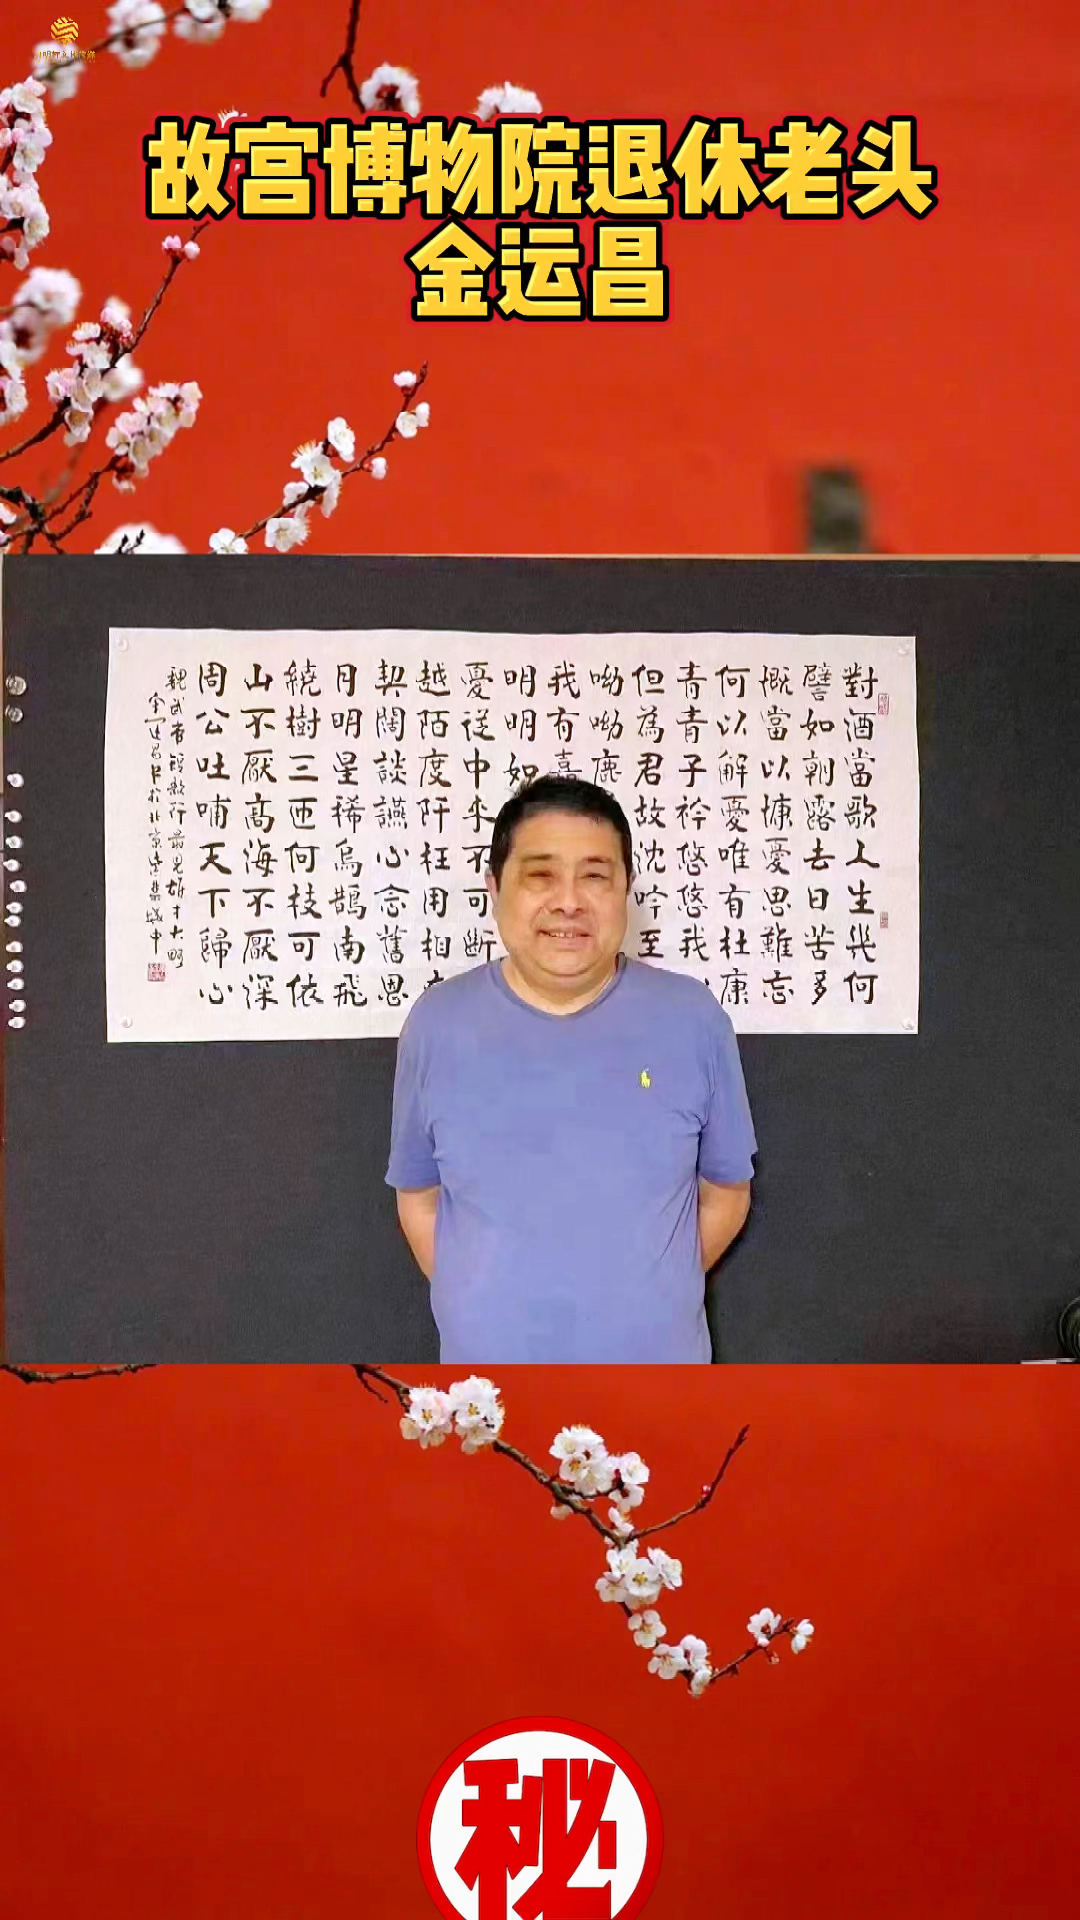 故宫博物院退休老头
金运昌
對酒當歌人生幾何
譬如朝露去日苦多
慨當以慷憂思難忘
何以解憂唯有杜康
青青子衿悠悠我
但為君故沈吟至
呦呦鹿
我有嘉
明明如
憂從中来不可斷
越陌度阡枉用相
契闊談讌心念舊恩
月明星稀烏鵲南飛
繞樹三匝何枝可依
山不厭高海不厭深
周公吐哺天下歸心
魏武帝短歌行最見雄才大略
金运昌書於北京紫禁城中
秘